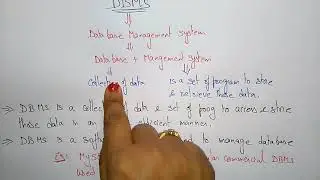 DBMS
Database Management system
Database + Mangement system
Collection of data is a set of program to store
& retrieve those data.
⇒ DBMS is a collection of data & set of prog to access & store
those data in an efficient manner.
⇒ DBMS is a software and to manage database
Ex: MyS commercial DBMS
used